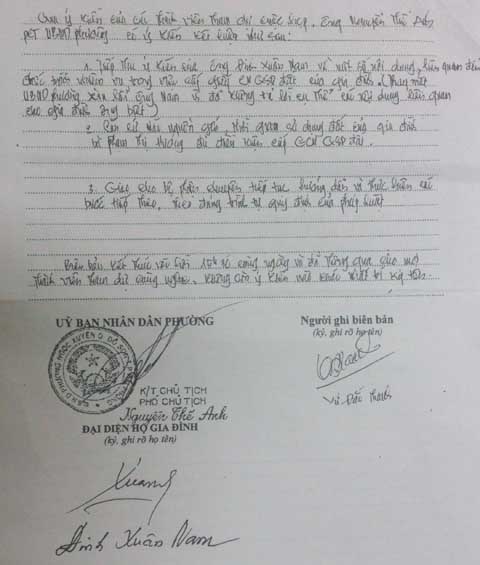 Qua ý kiến của các thành viên tham dự cuộc họp. Ông Nguyễn Thế Anh
PCT UBND phường có ý kiến kết luận như sau:
1. Tiếp thu ý kiến của ông Đinh Xuân Nam về một số nội dung, liên quan đến
trách nhiệm vụ trong việc cấp giấy CN QSD đất của gia đình. (Thay mặt
UBND phường xin lỗi ông Nam vì đã không trả lời cụ thể các nội dung liên quan
cho gia đình ông biết)
2. Căn cứ vào nguồn gốc, thời gian sử dụng đất của gia đình
bà Phạm Thị Hương đủ điều kiện cấp GCN QSD đất.
3. Giao cho bộ phận chuyên tiếp tục hướng dẫn và thực hiện các
bước tiếp theo, theo đúng trình tự quy định của pháp luật
Biên bản kết thúc vào hồi cùng ngày và đã thông qua cho mọi
thành viên tham dự cùng nghe, không còn ý kiến nào khác nhất trí ký tên.
UỶ BAN NHÂN DÂN PHƯỜNG
Người ghi biên bản
(ký, ghi rõ họ tên)
K/T CHỦ TỊCH
PHÓ CHỦ TỊCH
Nguyễn Thế Anh
Vũ Đức Thanh
ĐẠI DIỆN HỘ GIA ĐÌNH
(ký, ghi rõ họ tên)
Đinh Xuân Nam